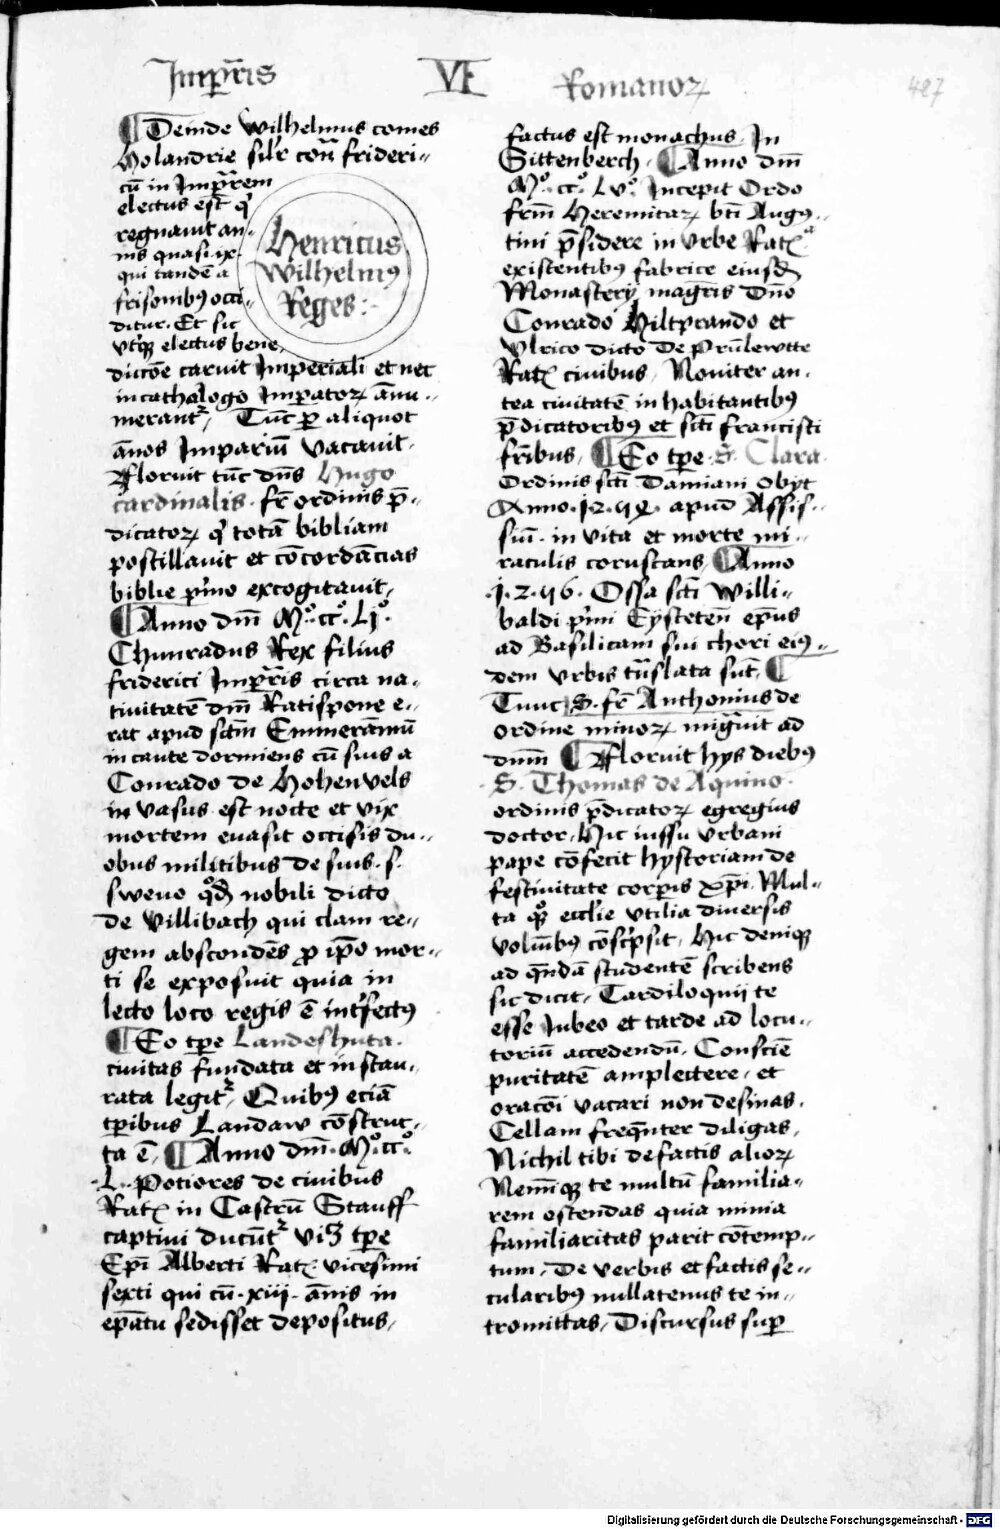 Imꝑr̄is VI Romanoꝝ 487
¶ Deinde Wilhelmus comes
Holandrie sil'r con̄ frideri-
cū in Imꝑrem
electus est qͥ
regnauit an-
nis quasi ix.
qui tandē a
frisonibꝰ occi-
ditur. Et sic
vtqꝫ electus bene,
Henricus
Wilhelmꝰ
Reges:
diccōe caruit Imperiali et nec
in cathalogo Imꝑatoꝝ ānu-
merant᷑, Tūc ꝑ aliquot
ānos Impariū vacauit.
Floruit tūc dn̄s Hugo
cardinalis. fr̄ ordinis p̄-
dicatoꝝ qͥ totā bibliam
postillauit et cōcordācias
biblie pͥmo excogitauit,
¶ Anno dm̄ Mº. ccº. Ljº.
Chunradus Rex filius
friderici Imꝑr̄is circa na-
tiuitatē dm̄ Ratispone e-
rat apud sctm̄ Emmerāmū
incaute dormiens cū suis a
Conrado de Hohenvels
in vasus est nocte et vix
mortem euasit occisis du-
obus militibus de suis. s.
sweuo qͦdā nobili dicto
de Villibach qui clam re-
gem abscondēs ꝓ ip̄o mor-
ti se exposuit quia in
lecto loco regis ē intͥfectꝰ
¶ Eo tꝑe Landeshuta.
ciuitas fundata et instau-
rata legit᷑, Quibꝰ eciā
tꝑibus Landaw cōstruc-
ta ē, ¶ Anno dm̄. Mº. ccº.
.L.. Potiores de ciuibus
Ratꝫ in Castrū Stauff
captiui ducūt᷑ vi3 tꝑe
Epī Alberti Ratꝫ. vicesimi
sexti qui cū. xiij. ānis in
ep̄atu sedisset depositus,
factus est monachus. In
Sittenberch. ¶ Anno dm̄
Mº. ccº. Lvº. Incepit Ordo
frm̄ Heremitaꝝ bt̄i Augꝰ-
tini p̄sidere in vrbe Ratꝫᵃ
existentibꝰ fabrice eiusdꝫ
Monasterij magr̄is Dn̄o
Conrado Hiltprando et
Vlrico dicto De Prūlewtte
Ratꝫ ciuibus, Nouiter an-
tea ciuitatē inhabitantibꝰ
p̄dicatoribꝰ et sct̄i francisci
fr̄ibus, ¶ Eo tꝑe. S. Clara.
Ordinis sct̄i Damiani obyt
Anno. 1.2.5Q. apud Assis-
siū. in vita et morte mi-
raculis coruscans, ¶ Anno
.1.2.56. Ossa sct̄i Willi-
baldi pͥmi Eystetēn ep̄us
ad Basilicam sui chori eiꝰ-
dem vrbis tn̄slata sūt, ¶
Tunc. S. fr̄ Anthonius de
ordine minoꝝ migͣuit ad
dn̄m ¶ Floruit hys diebꝰ
S. Thomas de Aquino.
ordinis p̄dicatoꝝ egregius
doctor. Hic iussu vrbani
pape cōfecit hystoriam de
festiuitate corꝑis xp̄i. Mul-
ta qͦqꝫ eccl'ie vtilia diuersis
volm̄bꝰ cōsc̄psit, Hic deniqꝫ
ad qn̄dā studentē scribens
sic dicit, Tardiloquij te
esse Jubeo et tarde ad locu-
toriū accedendū. Consciē
puritatē amplectere. et
oracōi vacari non desinas.
Cellam freqn̄ter diligas,
Nichil tibi de factis alioꝝ
Nemīqꝫ te multū familia-
rem ostendas quia nimia
familiaritas parit cōtemp-
tum, De verbis et factis se-
cularibꝰ nullatenus te in-
tromittas, Discursus suꝑ
Digitalisierung gefördert durch die Deutsche Forschungsgemeinschaft - DFG